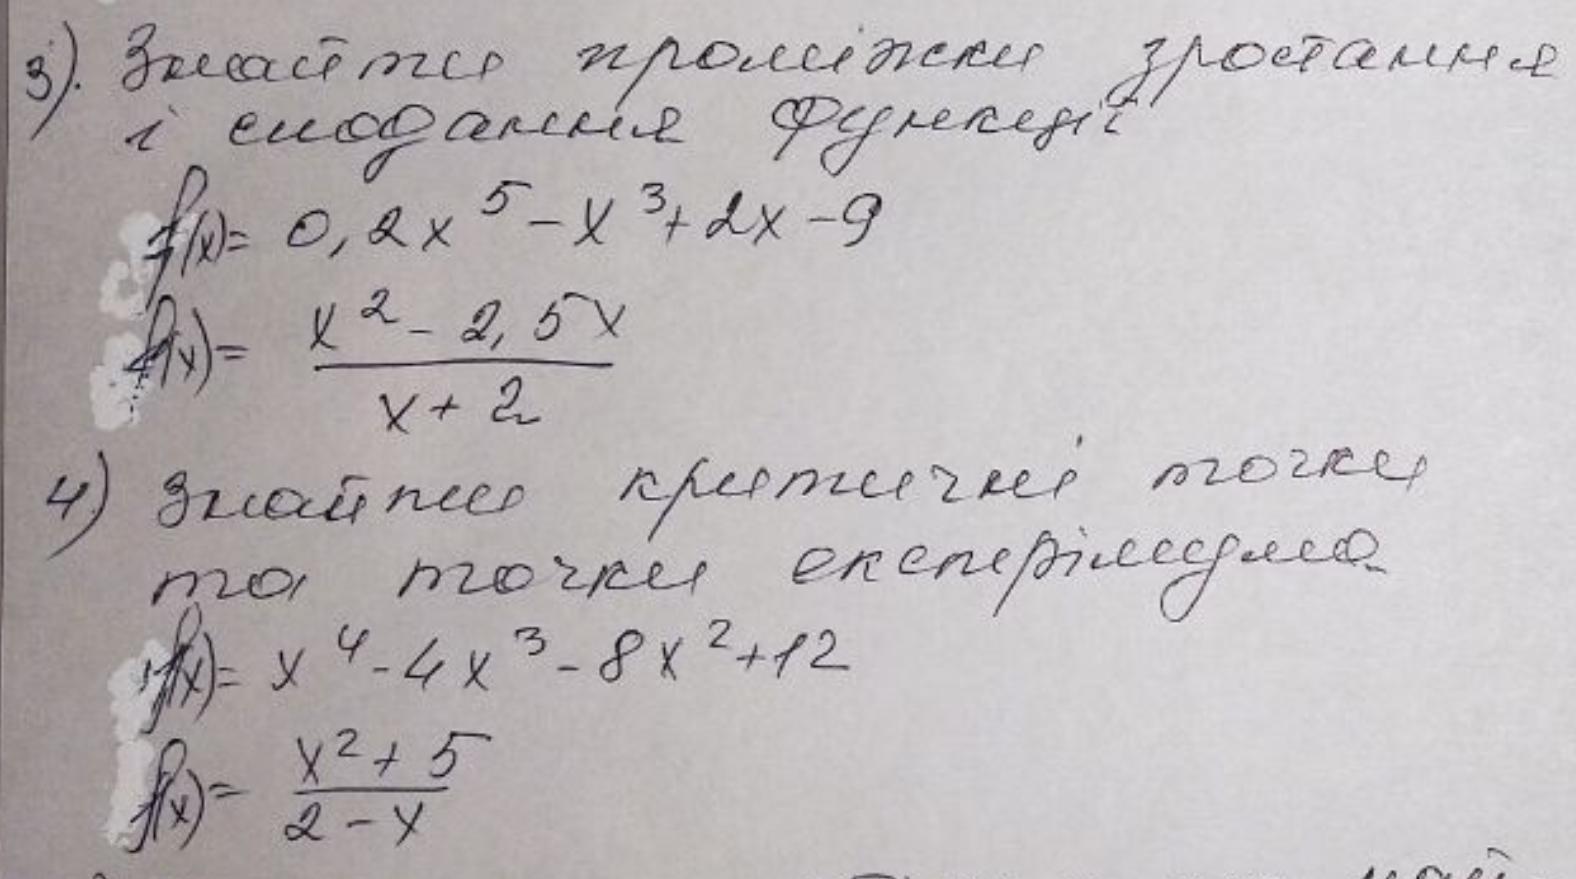 3). Знайти проміжки зростання
і спадання функції
f(x)= 0,2x⁵ - x³ + 2x - 9
f(x)= (x² - 2,5x)/(x + 2)
4) Знайти критичні точки
та точки експерімума
f(x)= x⁴ - 4x³ - 8x² + 12
f(x)= (x² + 5)/(2 - x)